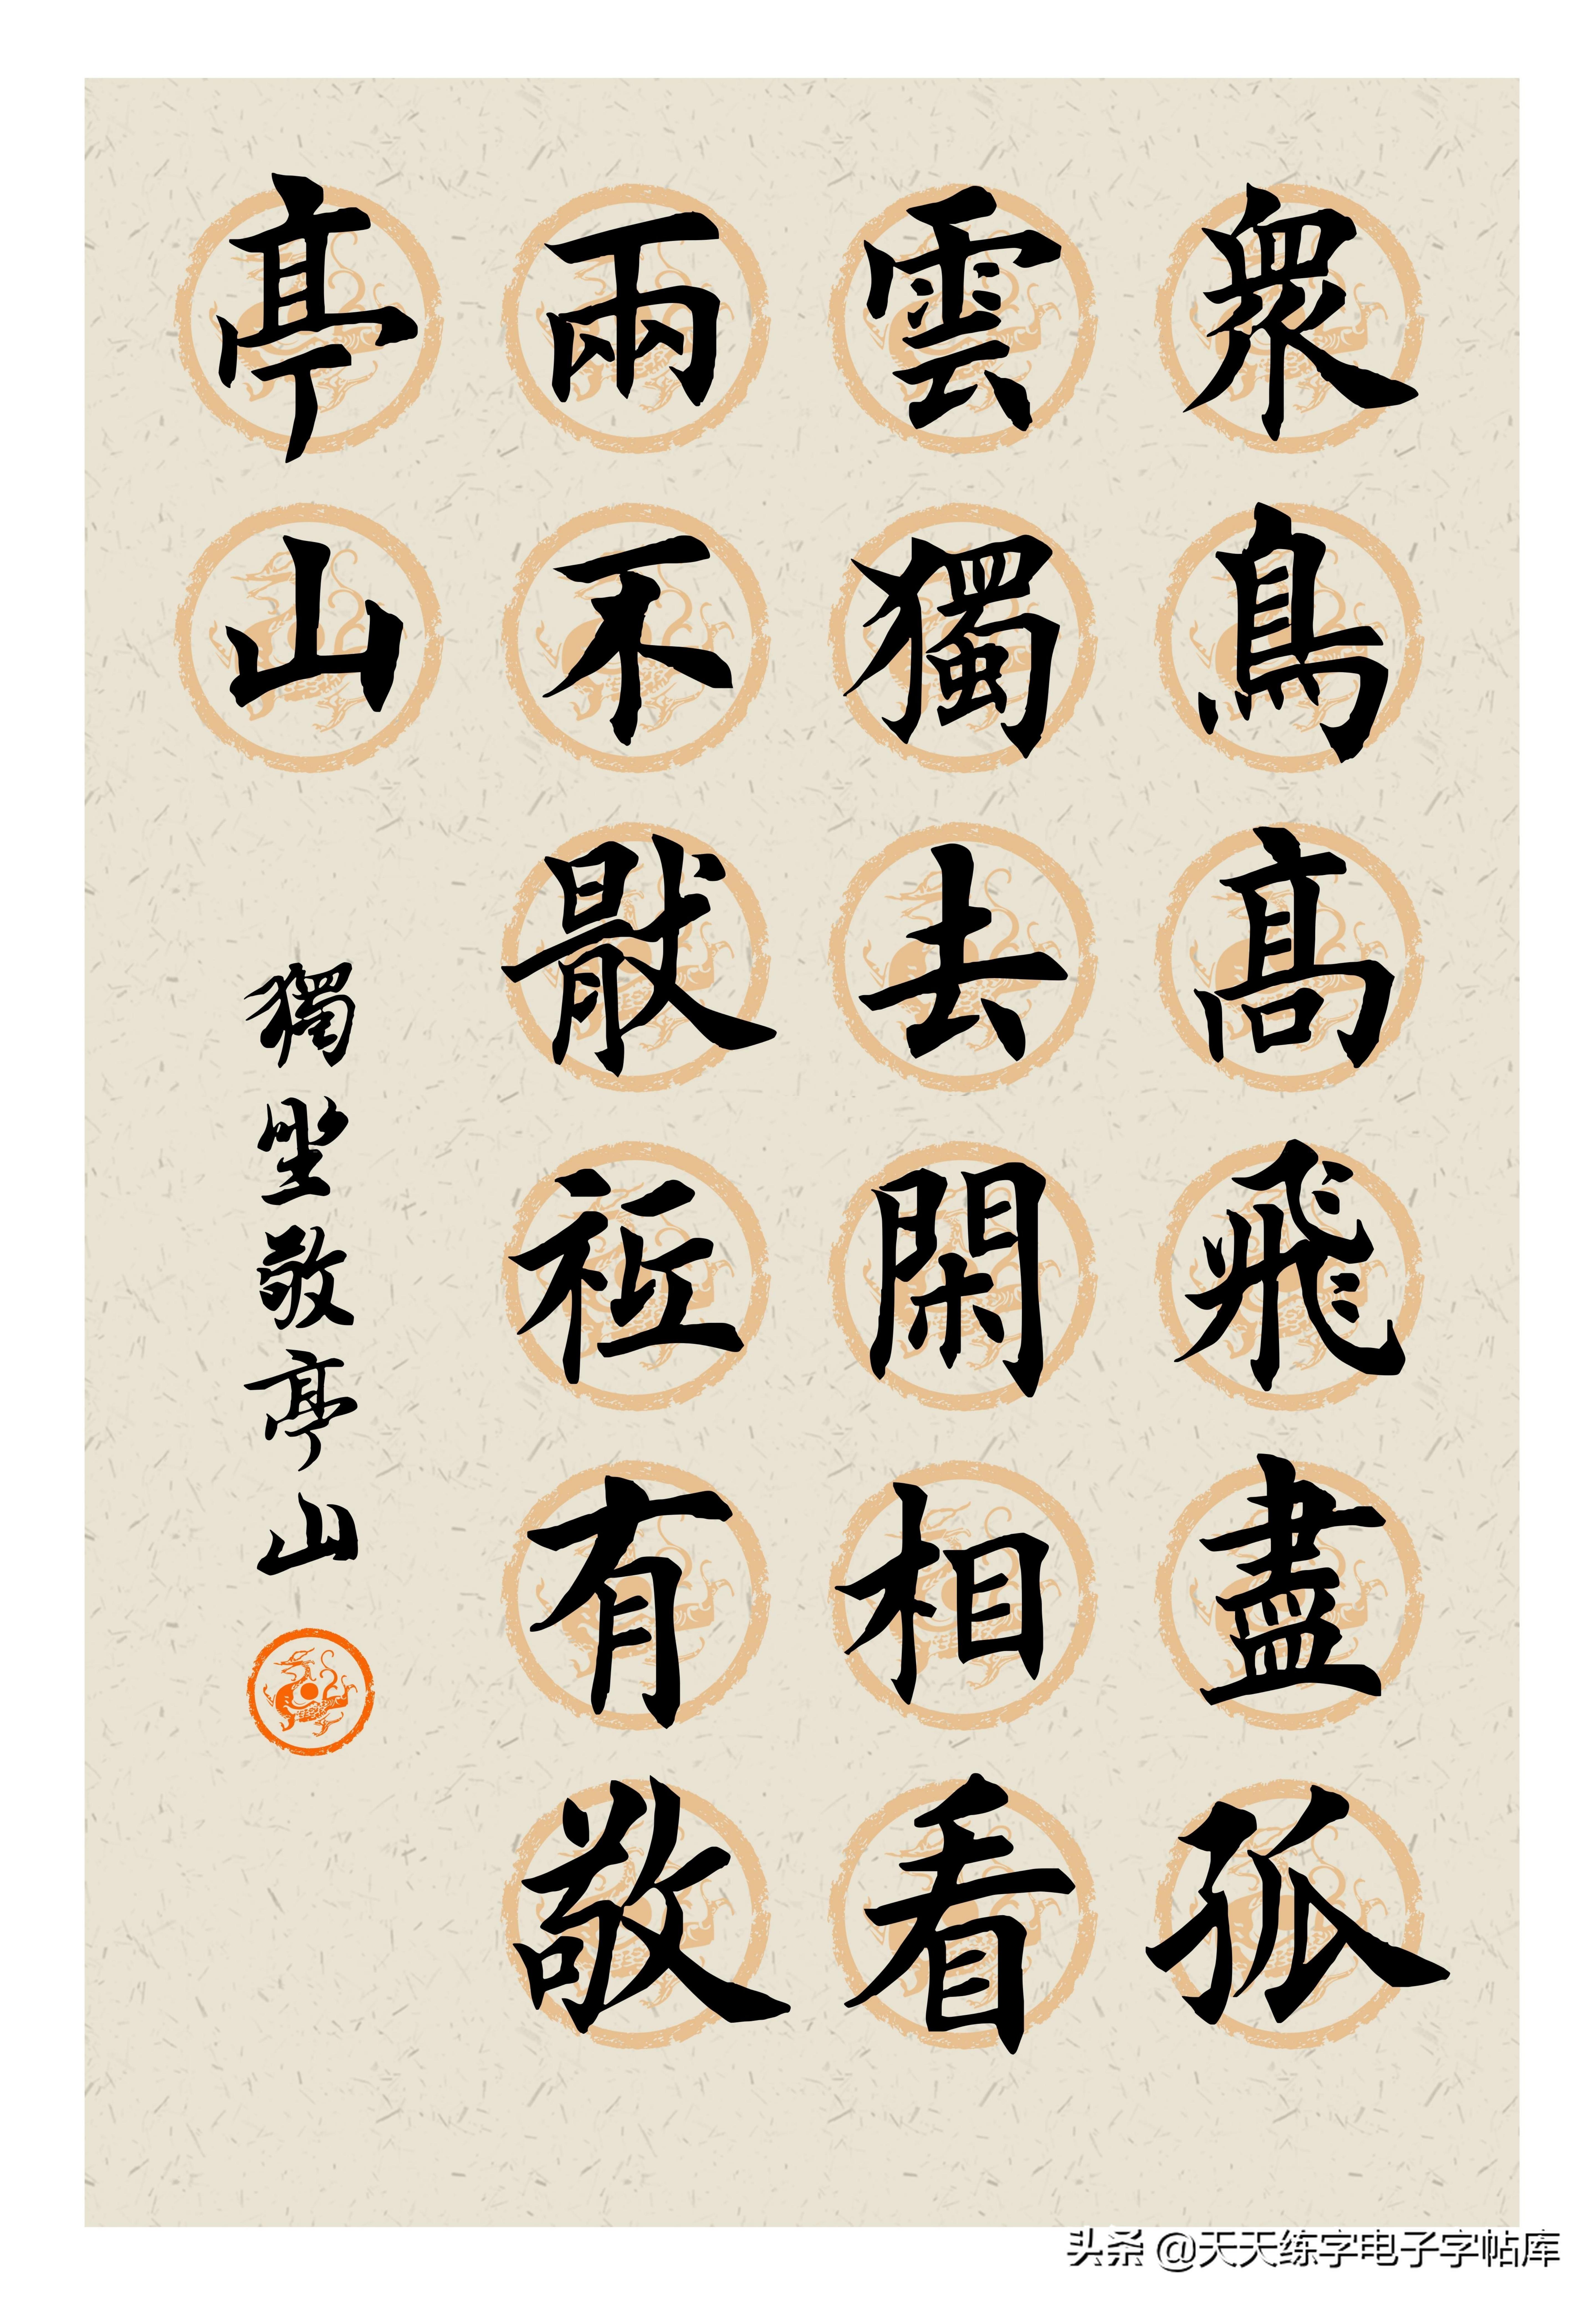 眾鳥高飛盡孤
雲獨去閑相看
兩不猒祗有敬
亭山
獨坐敬亭山
头条 @天天练字电子字帖库